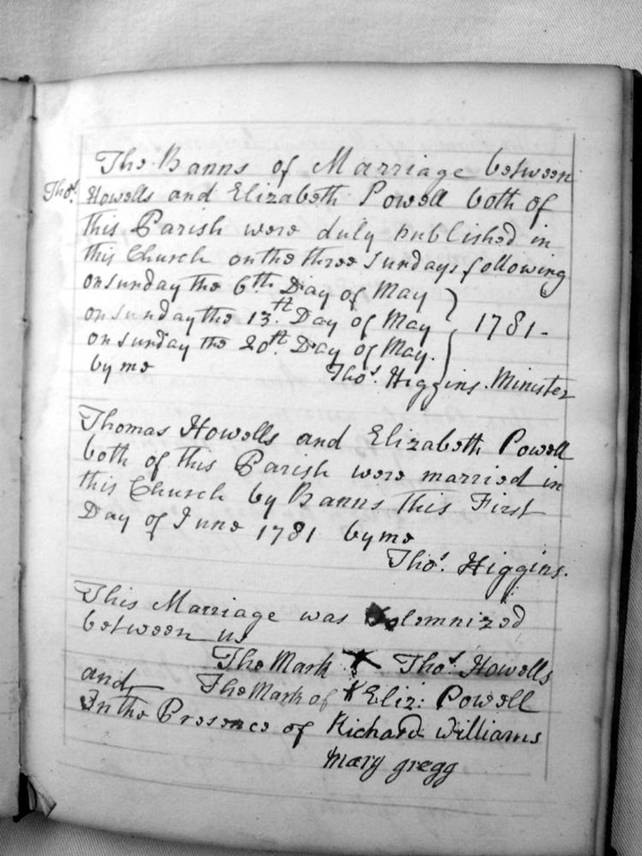 The Banns of Marriage between
Thos. Howells and Elizabeth Powell both of
this Parish were duly published in
this Church on the three Sundays following
on sunday the 6th Day of May
on sunday the 13th Day of May } 1781-
on sunday the 20th Day of May.
by me Thos. Higgins. Minister
Thomas Howells and Elizabeth Powell
both of this Parish were married in
this Church by Banns this First
Day of June 1781 by me
Thos. Higgins.
This Marriage was Solemnized
between us
The Mark X Thos. Howells
and The Mark of X Eliz: Powell
In the Presence of Richard Williams
mary gregg